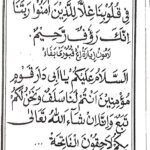 فِي قُلُوبِنَا غِلًّا لِّلَّذِينَ آمَنُوا رَبَّنَا
إِنَّكَ رَؤُوفٌ رَّحِيمٌ
السَّلَامُ عَلَيْكُمْ يَا أَهْلَ دَارِ قَوْمٍ
مُؤْمِنِينَ أَنْتُمْ لَنَا سَلَفٌ وَنَحْنُ لَكُمْ
تَبَعٌ وَإِنَّا إِنْ شَاءَ اللهُ تَعَالَى
بِكُمْ لَاحِقُونَ الْفَاتِحَة